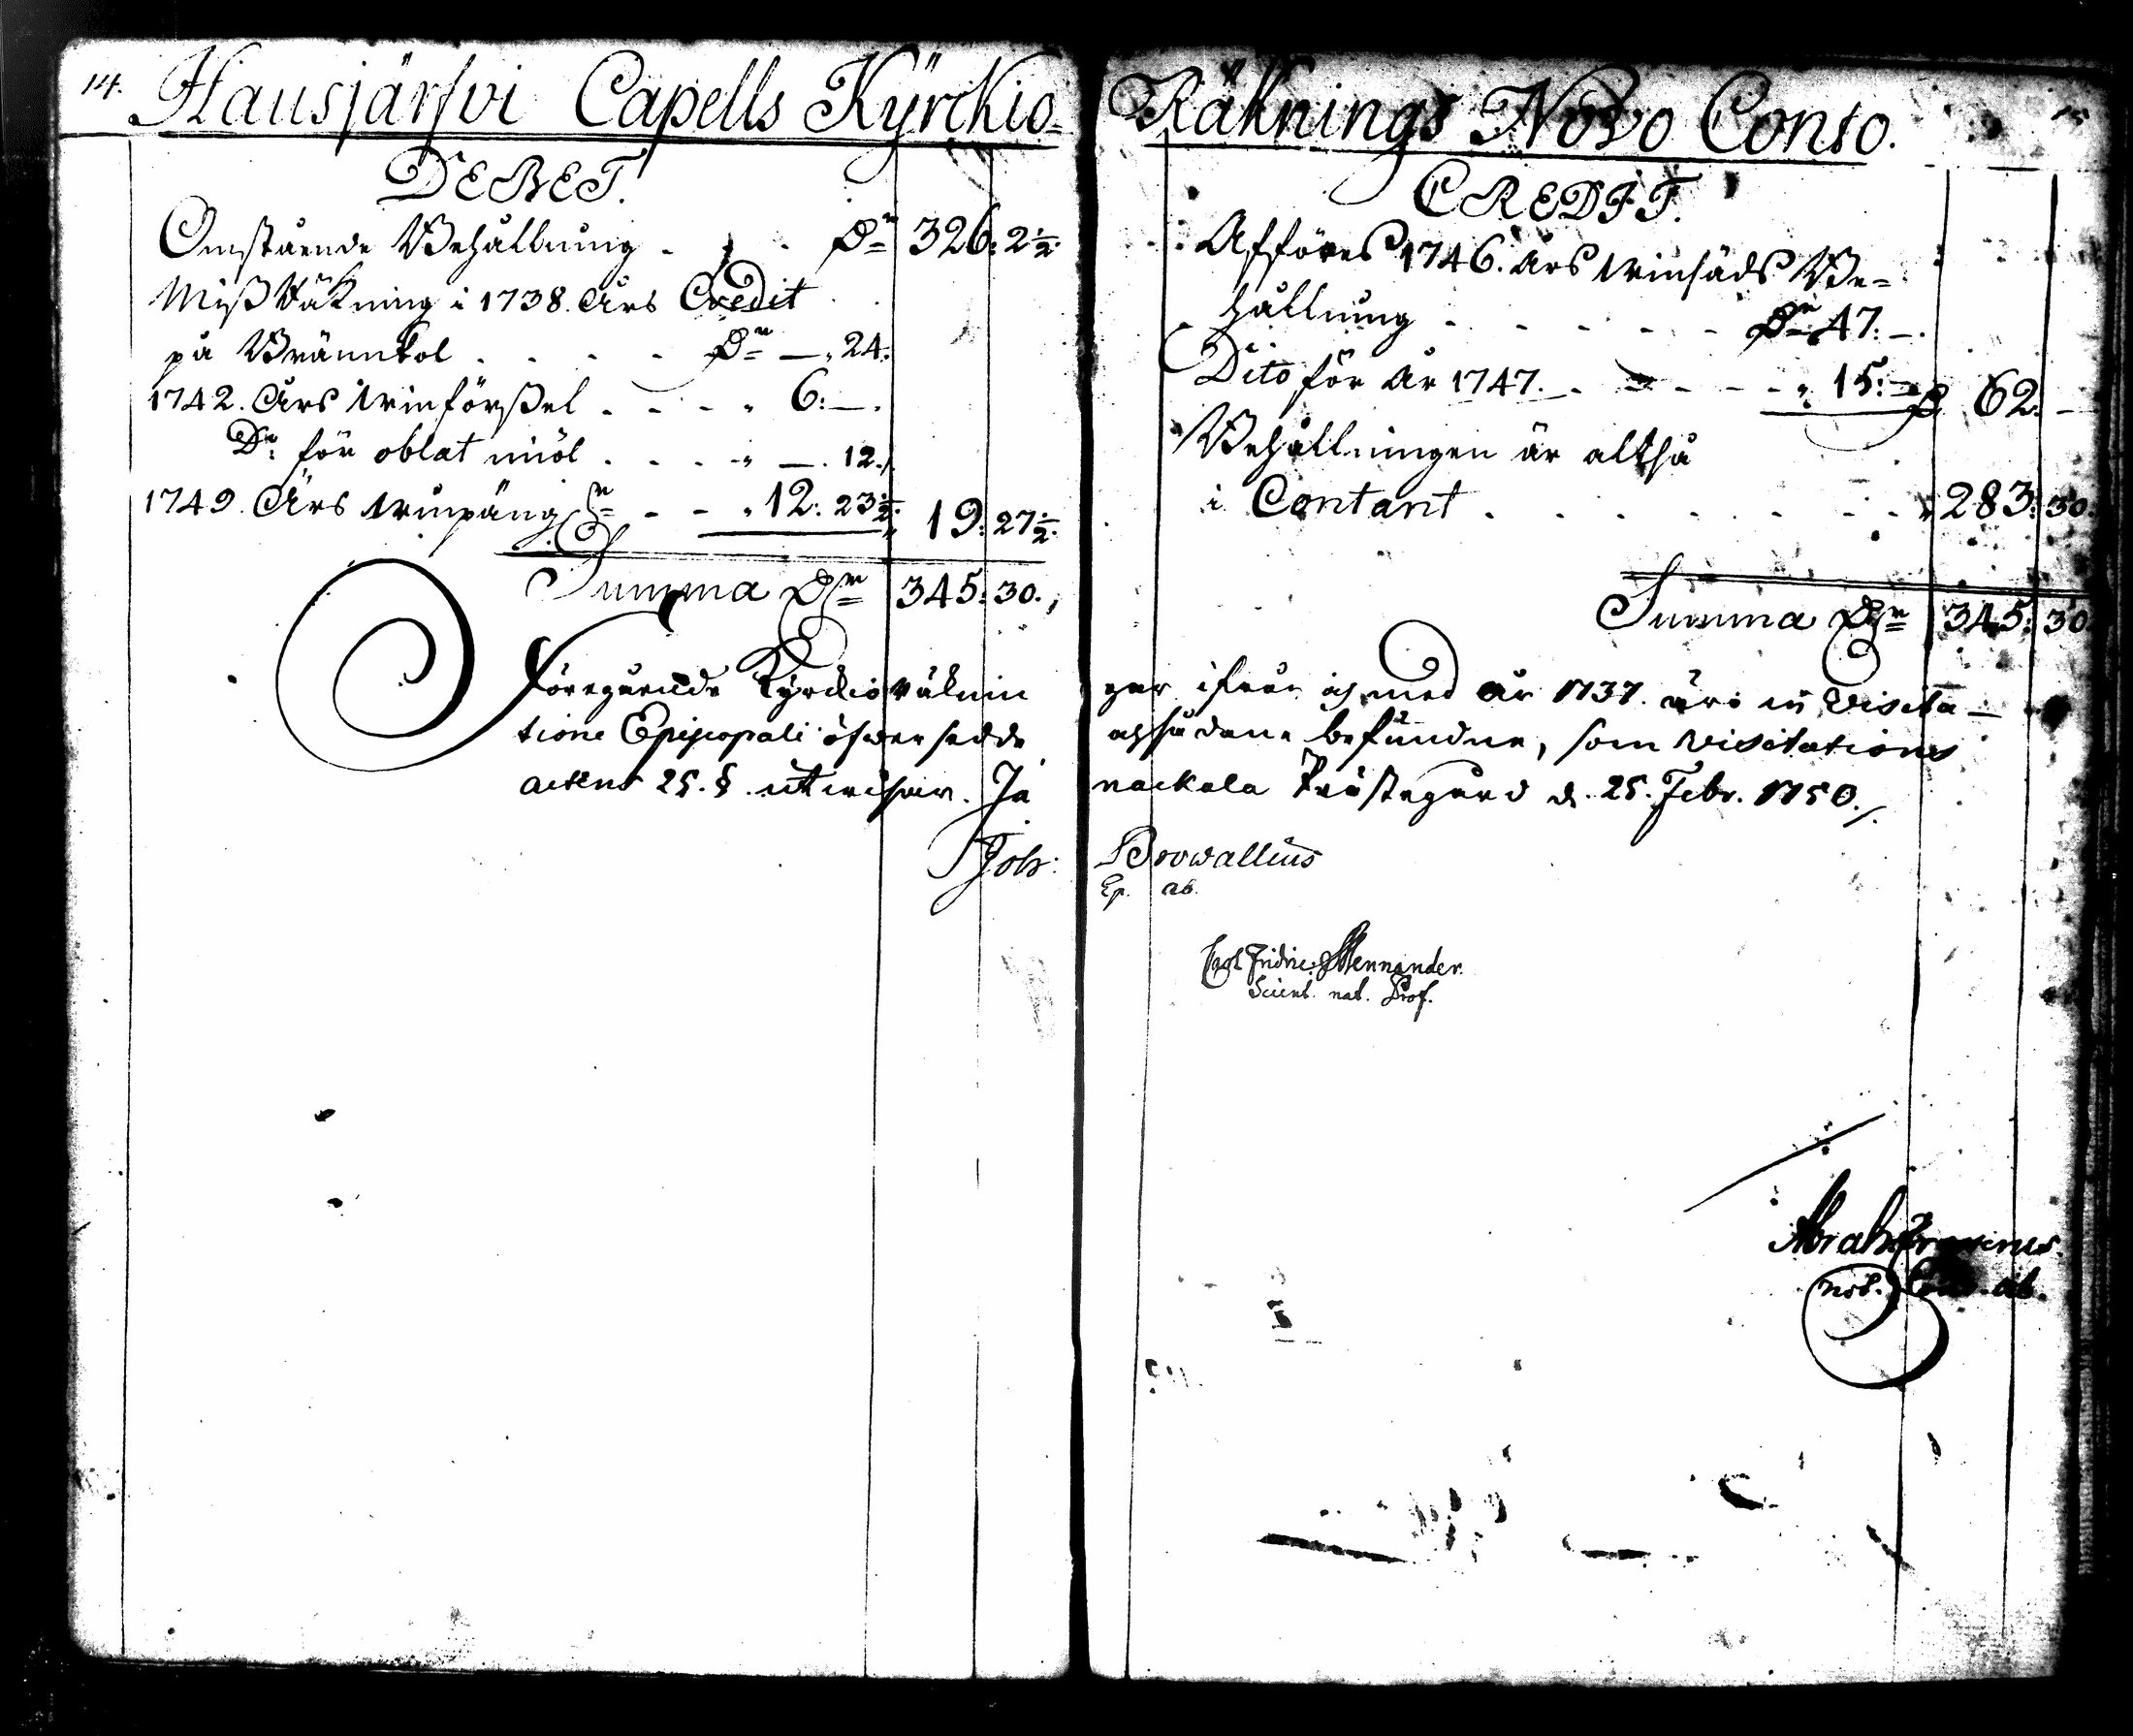 14. Hausjärfvi Capells Kyrckio-
DEBET.
Omstående Behållning . . . Dr 326: 2 1/2.
Miss Räkning i 1738. Års Credit
på Brännkol . . . . Dr —, 24.
1742. Års winförssel . . . . " 6: —.
Do för oblat miöl . . . . " —. 12.
1749. Års winpäng. . . . " 12: 23 1/2. " 19: 27 1/2.
Summa Dr 345: 30.
Räknings Novo Conto. 15
CREDIT.
Afföres 1746. Års winsäds Be=
hållning . . . . . . Dr 47: —.
Dito för År 1747. . . . . . " 15: — 62. —
Behållningen är altså
i Contant . . . . . . . . " 283: 30.
Summa Dr 345: 30
Föregående Kyrckioräknin gar ifrån och med år 1737. äro in Visita-
tione Episcopali öfwersedde och sådane befundne, som Visitations
actens 25. § utwisar. Ja nackala Prästegård d. 25. Febr. 1750.
Joh: Browallius
Ep. ab.
Carl Fridric Mennander
Scient. nat. Prof.
Abrah.
not. ab.